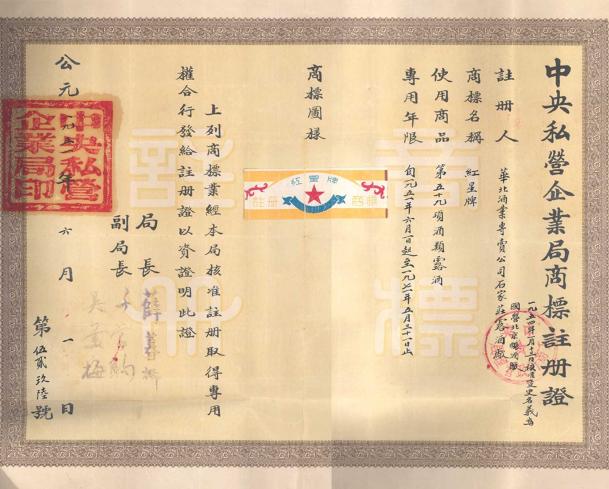 中央私營企業局商標註冊證
註冊人
華北酒業專賣公司石家莊製酒廠
一九五四年一月十三日核准變更名義為
國營北京釀酒廠
商標名稱 紅星牌
使用商品 第五十九項酒類露酒
專用年限 自一九五一年六月一日起至一九七一年五月三十一日止
商標圖樣
紅星牌
註冊
商標
上列商標業經本局核准註冊取得專用
權合行發給註冊證以資證明此證
局長
副局長
公元一九五一年六月一日
中央私營
企業局印
第伍貳玖陸號
註冊